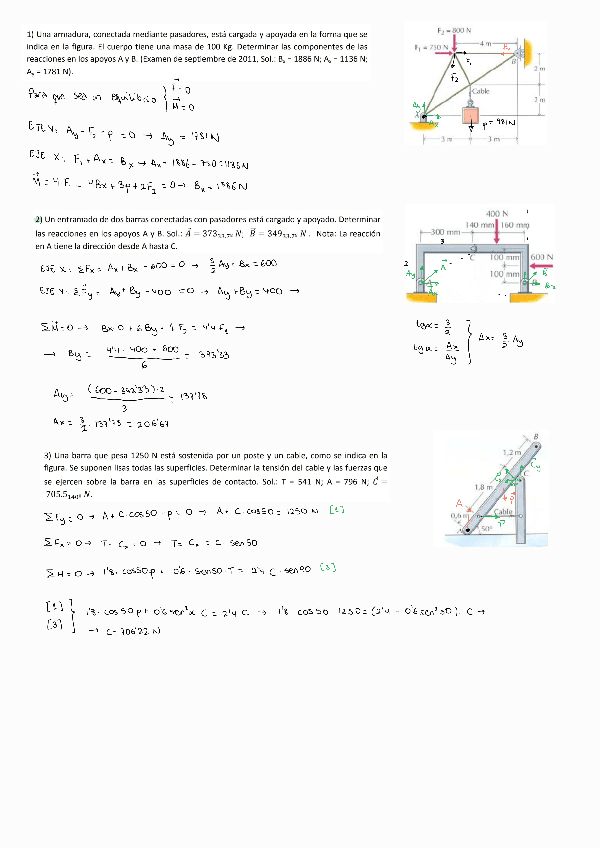 1) Una armadura, conectada mediante pasadores, está cargada y apoyada en la forma que se
indica en la figura. El cuerpo tiene una masa de 100 Kg. Determinar las componentes de las
reacciones en los apoyos A y B. (Examen de septiembre de 2011, Sol.: Bₓ = 1886 N; Aₓ = 1136 N;
Aᵧ = 1781 N).
F₂ = 800 N
F₁ = 750 N
4 m
Bₓ
B
F₁
F₂
2 m
Cable
2 m
A
P = 981 N
3 m
3 m
Para que sea un equilibrio { F = 0
M = 0
EJE Y: Ay - F₂ - p = 0 → Ay = 1781 N
EJE X: F₁ + Ax = Bx → Ax = 1886 - 750 = 1136 N
2) Un entramado de dos barras conectadas con pasadores está cargado y apoyado. Determinar
las reacciones en los apoyos A y B. Sol.:
Nota: La reacción
en A tiene la dirección desde A hasta C.
400 N
140 mm
160 mm
300 mm
C
100 mm
600 N
100 mm
Ay
A
B
EJE X: ΣFx = Ax + Bx - 600 = 0 → 3/2 Ay + Bx = 600
EJE Y: ΣFy = Ay + By - 400 = 0 → Ay + By = 400 →
tg α = 3/2
tg α = Ax/Ay
} Ax = 3/2 Ay
ΣM = 0 →
→ By =
6
= 393'33
Ay =
3
= 137'78
Ax = 3/2 · 137'78 = 206'67
3) Una barra que pesa 1250 N está sostenida por un poste y un cable, como se indica en la
figura. Se suponen lisas todas las superficies. Determinar la tensión del cable y las fuerzas que
se ejercen sobre la barra en las superficies de contacto. Sol.: T = 541 N; A = 796 N; C⃗ =
705.5₁₄₀° N.
B
1,2 m
C
1,8 m
A
0,6 m
Cable
50°
ΣFy = 0 → A + C·cos50 - p = 0 → A + C·cos50 = 1250 N [1]
ΣFx = 0 → T - Cx = 0 → T = Cx = C · sen50
ΣM = 0 → 1'8 · cos50 · p + 0'6 · sen50 · T = 2'4 · C · sen90 [3]
[1]
[3]
} 1'8 · cos50 · 1250 = (2'4 - 0'6 sen²50) · C →
→ C = 706'22 N